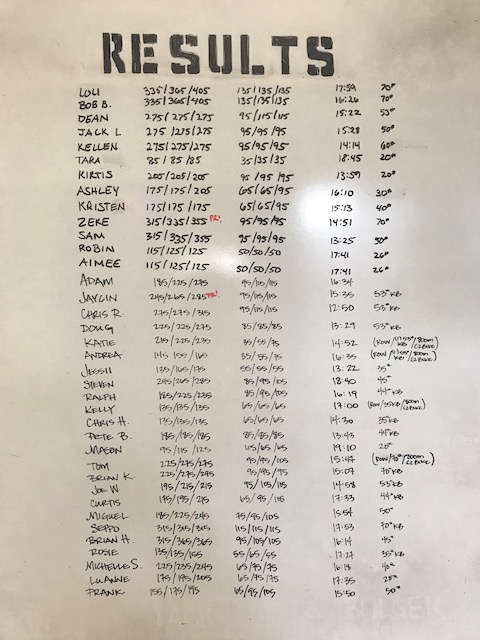 RESULTS
LOU 335/365/405 135/135/135 17:59 70#
BOB B. 335/365/405 135/135/135 16:26 70#
DEAN 275/275/275 95/115/115 15:22 53#
JACK L 275/275/275 95/95/95 15:28 50#
KELLEN 275/275/275 95/95/95 14:14 60#
TARA 85/85/85 35/35/35 18:45 20#
KIRTIS 205/205/205 95/95/95 13:59 20#
ASHLEY 175/175/205 65/65/95 16:10 30#
KRISTEN 175/175/175 65/65/95 15:13 40#
ZEKE 315/335/355 PR! 95/95/95 14:51 70#
SAM 315/335/355 95/95/95 13:25 50#
ROBIN 115/125/125 50/50/50 17:41 26#
AIMEE 115/125/125 50/50/50 17:41 26#
ADAM 185/225/275 95/105/115 16:34
JAYLIN 245/265/285 PR! 95/115/115 15:35 53# KB
CHRIS R. 275/275/315 95/115/115 12:50 53# KB
DOUG 225/225/275 85/85/85 13:29 53# KB
KATIE 215/225/235 35/55/75 14:52
ANDREA 145/155/165 35/55/75 16:35
JESSII 135/165/175 55/55/55 13:22 35#
STEVEN 245/265/285 85/95/105 18:40 45#
RALPH 185/225/225 85/95/105 16:19 44# KB
KELLY 135/135/135 65/65/65 17:00
CHRIS H. 135/135/135 65/65/65 14:30 35# KB
PETE B. 185/185/185 85/85/85 13:43 44# KB
MASON 95/115/125 65/65/65 19:10 20#
TOM 225/275/275 95/95/105 15:47
BRIAN K. 225/275/295 95/95/95 15:07 70# KB
JOE W 195/215/215 95/105/115 14:58 53# KB
CURTIS 175/195/215 65/95/115 17:33 44# KB
MIGUEL 185/225/245 75/95/105 15:54 50#
SEPPO 315/315/315 115/115/115 17:53 70# KB
BRIAN H. 315/365/365 95/105/105 16:14 45#
ROSIE 135/135/155 55/65/55 17:27 35# KB
MICHELLE S. 225/235/245 65/75/75 16:18 40#
LUANNE 175/195/205 65/75/75 17:35 25#
FRANK 155/175/195 65/95/105 15:50 50#